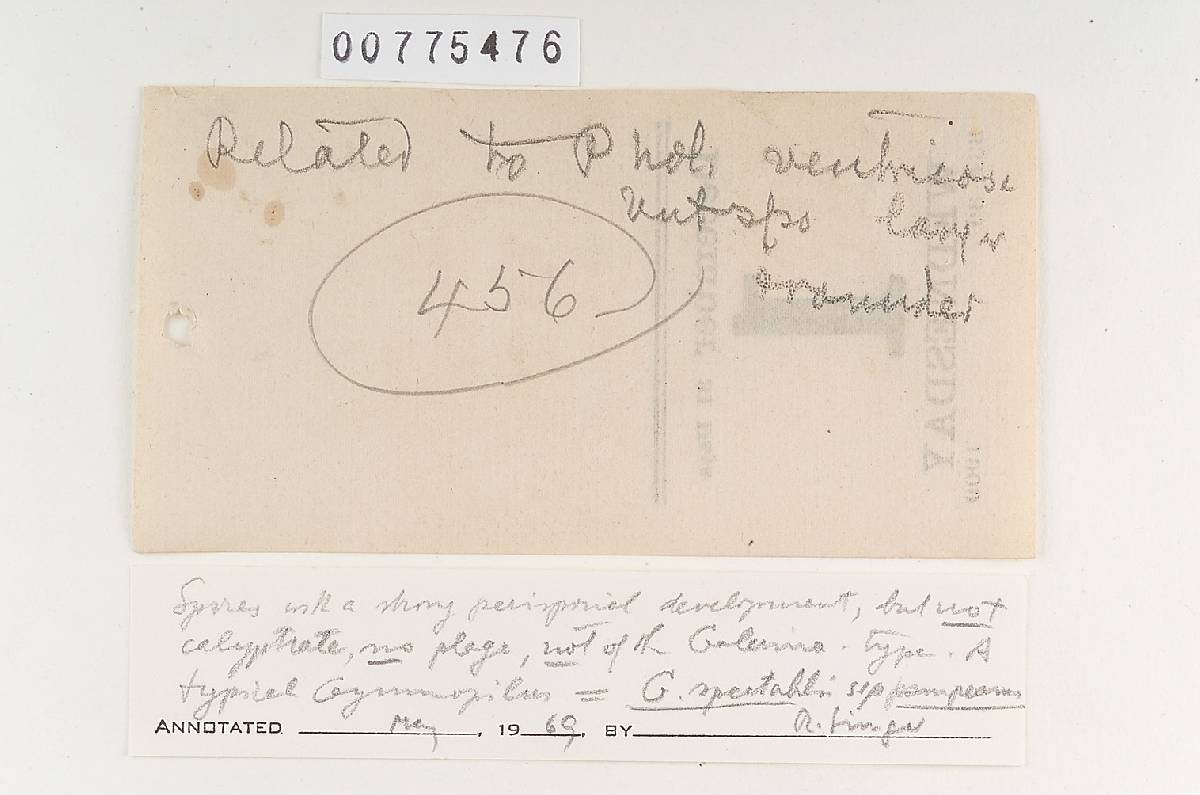 00775476
Related to Phol. ventricose
but spo larger
rounder
456
WEDNESDAY
Spores with a strong perisporial development, but not
calyptrate, no plage, not of the Galerina-type. A
typical Gymnopilus = G. spectabilis ssp pampeanus
ANNOTATED May, 1969, BY R. Singer